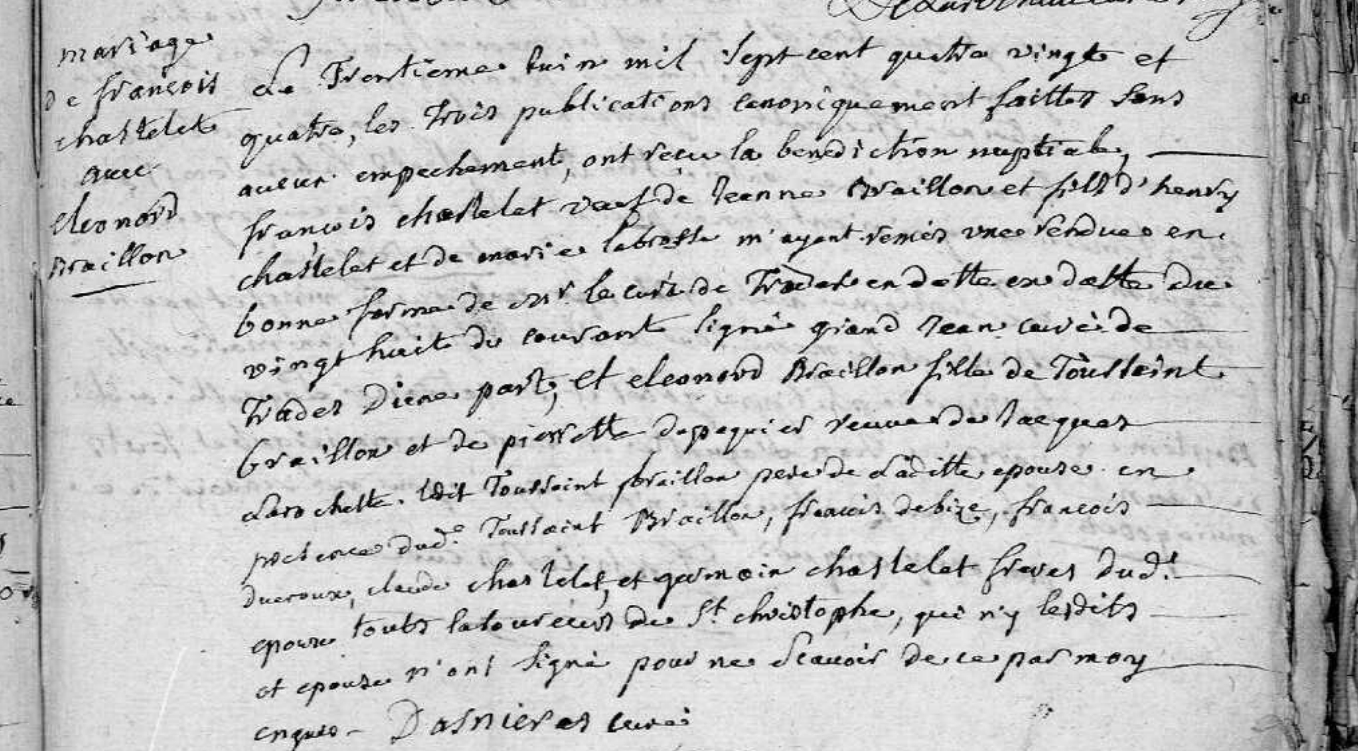 mariage
de françois
chastelet
avec
eleonord
Braillon
Le Trentieme Iuin mil sept cent quatre vingt et
quatre, les trois publications canoniquement faittes sans
aucun empechement, ont recu la benediction nuptiale,
francois chastelet veuf de Jeanne Braillon et fils d'henry
chastelet et de marie labrosse m'ayant remis une rendue en
bonne forme de mr le curé de Trades en datte en datte du
vingt huit du courant signé grand Jean curé de
Trades D'une part, et eleonord Braillon fille de Toussaint
Braillon et de pierrette depaquier veuve de Jacques
Larochette. ledit Toussaint Braillon pere de Laditte epouse en
presence dud. Toussaint Braillon, francois debize, francois
ducroux, claude chastelet, et germain chastelet freres dud.
epoux touts laboureurs de St christophe, qui n'y lesdits
et epouse n'ont signé pour ne scavoir de ce par moy
enquis - Dasnieres curé